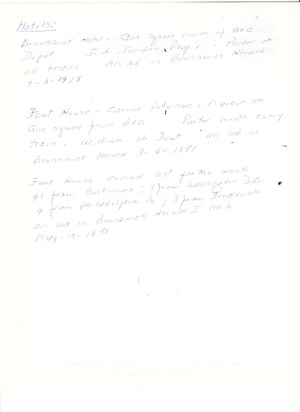 Hotels:
Brunswick Hotel - One square north of B&O
Depot J. d. Jordan, Prop'r. - Porter at
all trains An ad in Brunswick Herald.
3-6-1918
Fout House - Corner Potomac & Market St
One square from B&O Porter meets every
train. William H. Fout an ad in
Brunswick Herald 3-6-1891
Fout House arrived last for the week
41 from Baltimore; 3 from Washington D.C.
4 from Philadelphia Pa; 3 from Frederick
an ad in Brunswick Herald I No 4
May-15-1891